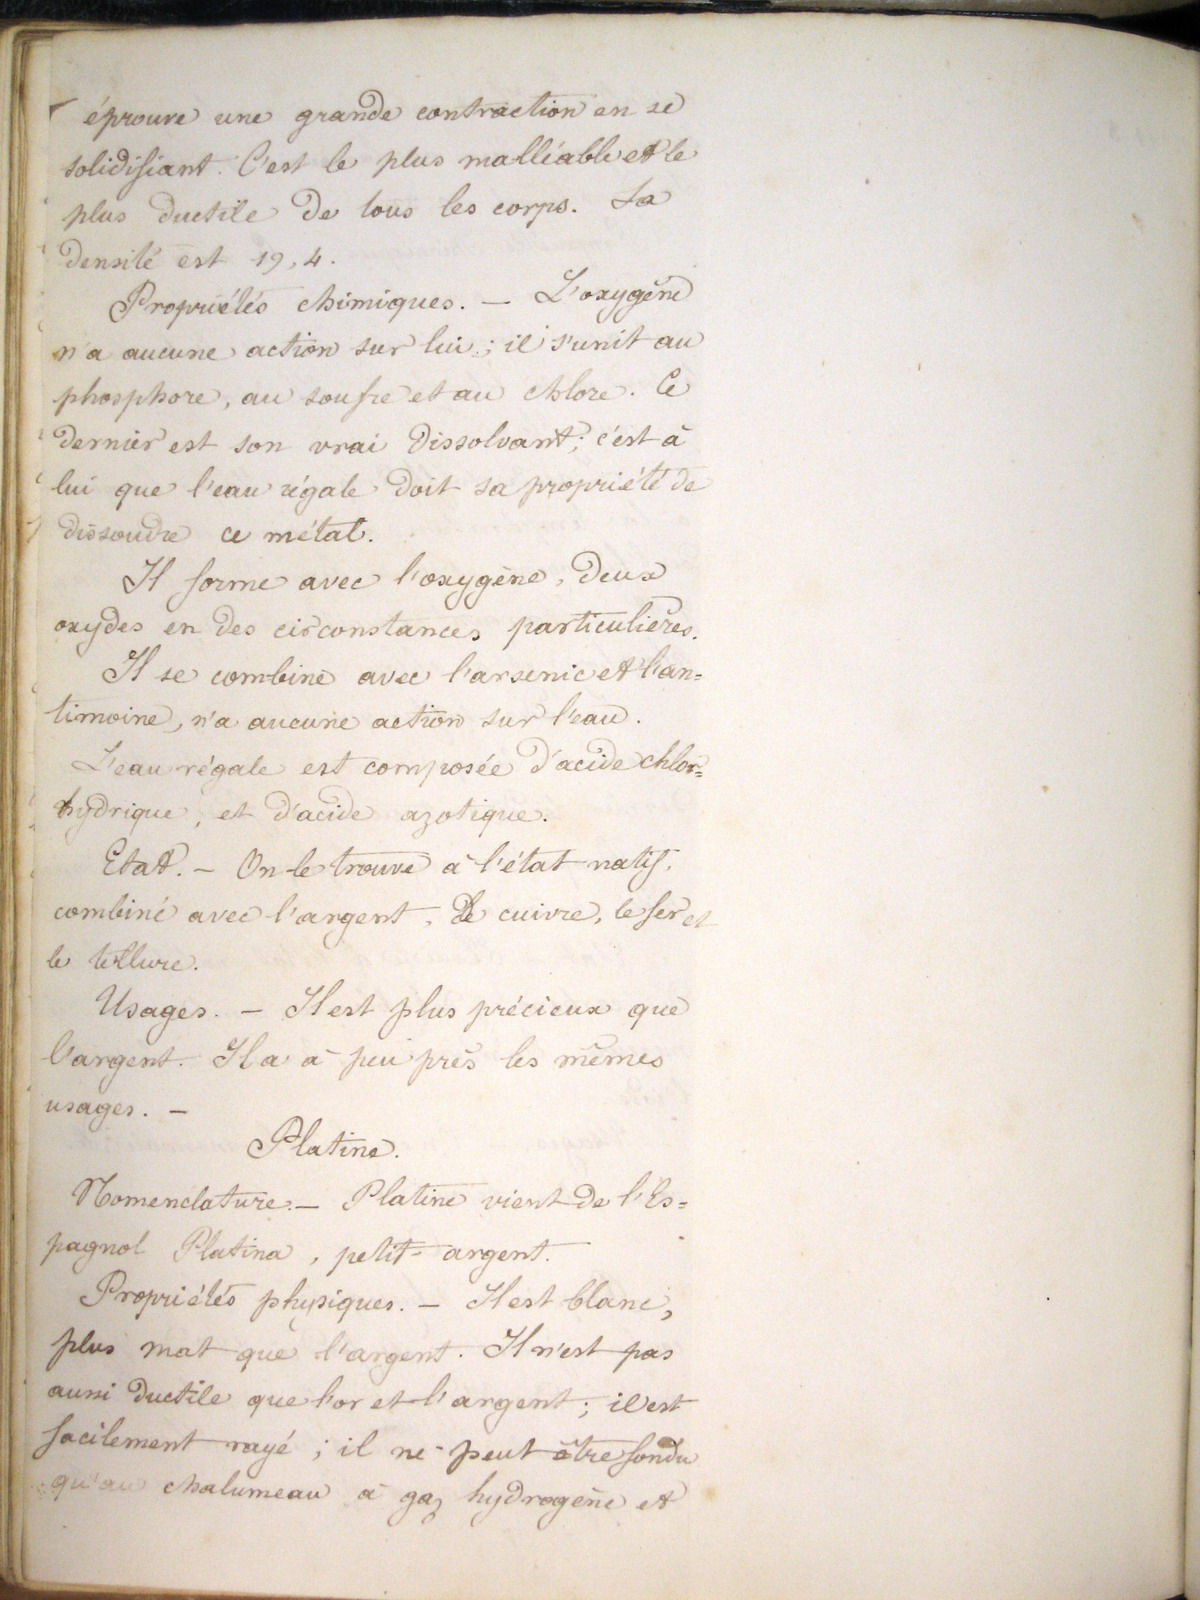 éprouve une grande contraction en se
solidifiant. C'est le plus malléable et le
plus ductile de tous les corps. Sa
densité est 19,4.
Propriétés chimiques. — L'oxygène
n'a aucune action sur lui ; il s'unit au
phosphore, au soufre et au chlore. Ce
dernier est son vrai dissolvant ; c'est à
lui que l'eau régale doit sa propriété de
dissoudre ce métal.
Il forme avec l'oxygène, deux
oxydes en des circonstances particulières.
Il se combine avec l'arsenic et l'an=
timoine, n'a aucune action sur l'eau.
L'eau régale est composée d'acide chlor=
hydrique, et d'acide azotique.
Etat. — On le trouve à l'état natif,
combiné avec l'argent, le cuivre, le fer et
le tellure.
Usages. — Il est plus précieux que
l'argent. Il a à peu près les mêmes
usages. —
Platine.
Nomenclature. — Platine vient de l'Es=
pagnol Platina, petit-argent.
Propriétés physiques. — Il est blanc,
plus mat que l'argent. Il n'est pas
aussi ductile que l'or et l'argent ; il est
facilement rayé ; il ne peut être fondu
qu'au chalumeau à gaz hydrogène et